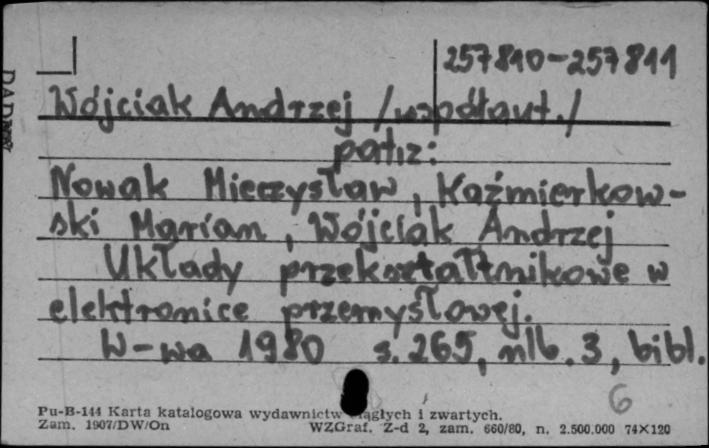 257810-257811
Wójciak Andrzej /współaut./
patrz:
Nowak Mieczysław, Kaźmierkow-
ski Marian, Wójciak Andrzej
Układy przekształtnikowe w
elektronice przemysłowej.
W-wa 1980 s. 265, nlb. 3, bibl.
6
Pu-B-144 Karta katalogowa wydawnictw ciągłych i zwartych.
Zam. 1907/DW/On WZGraf. Z-d 2, zam. 660/80, n. 2.500.000 74X120